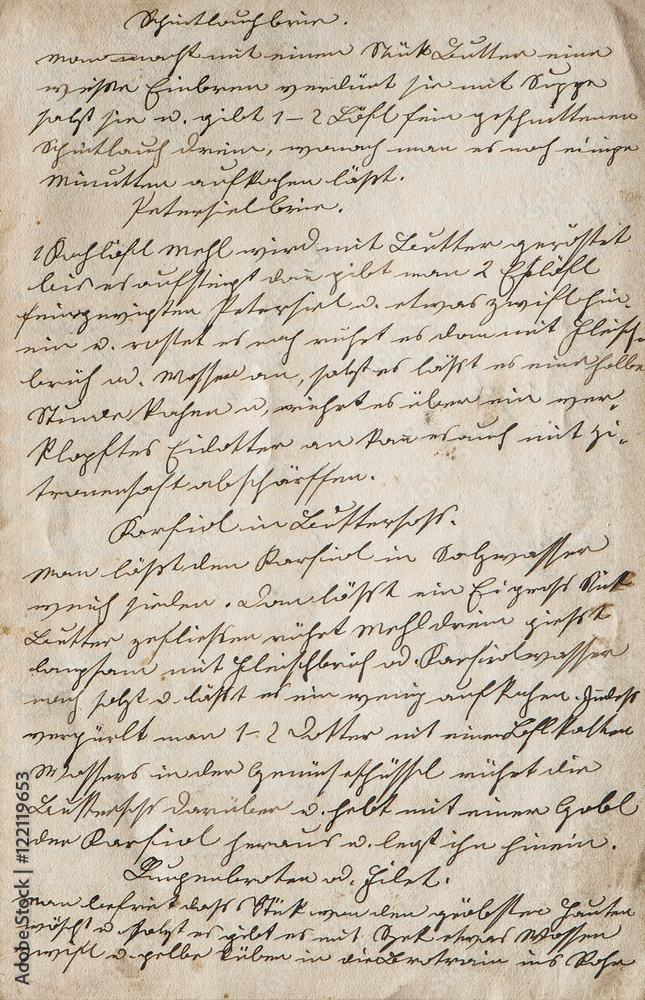 Schnittlauchbrüe.
man macht mit einem Stük Butter eine
weisse Einbren verdünt sie mit Suppe
salzt sie u. gibt 1–2 Löfl fein geschnittenen
Schnittlauch drein, wonach man es noch einige
Minutten aufkochen läßt.
Petersielbrüe.
1 Kochlöfl Mehl wird mit Butter geröstet
bis es aufsteigt dan̄ gibt man 2 Eßlöfl
feingewigten Petersiel u. etwas zwifl hin-
ein u. rostet es noch rührt es dan mit Fleisch-
brüh od. Wasser an, salzt es läßt es eine halbe
Stunde kochen u. rührt es über ein ver-
klopftes Eidotter an kan̄ es auch mit Zi-
tronensaft abschärffen.
Karfiol in Buttersoss.
man läßt den Karfiol in Salzwasser
weich sieden. Dan läßt ein Ei gross Stük
Butter zefliessen rührt Mehl drein giesst
langsam mit Fleischbrüh od. Karfiolwasser
nach salzt u. läßt es ein wenig aufkochen. Indess
verquirlt man 1–2 Dotter mit einen Löfl kalten
Wassers in der Gemüseschüssel rührt die
Buttersoss darüber u. hebt mit einer Gabl
den Karfiol heraus u. legt ihn hinein.
Lungenbroten od. Filet.
man befreit dass Stük von den gröbsten Hauten
wäscht u. salzt es gibt es mit Spek etwas Wasser
zwifl u. gelbe Rüben in die Brotrain ins Rohr
Adobe Stock
Adobe Stock | #122119653